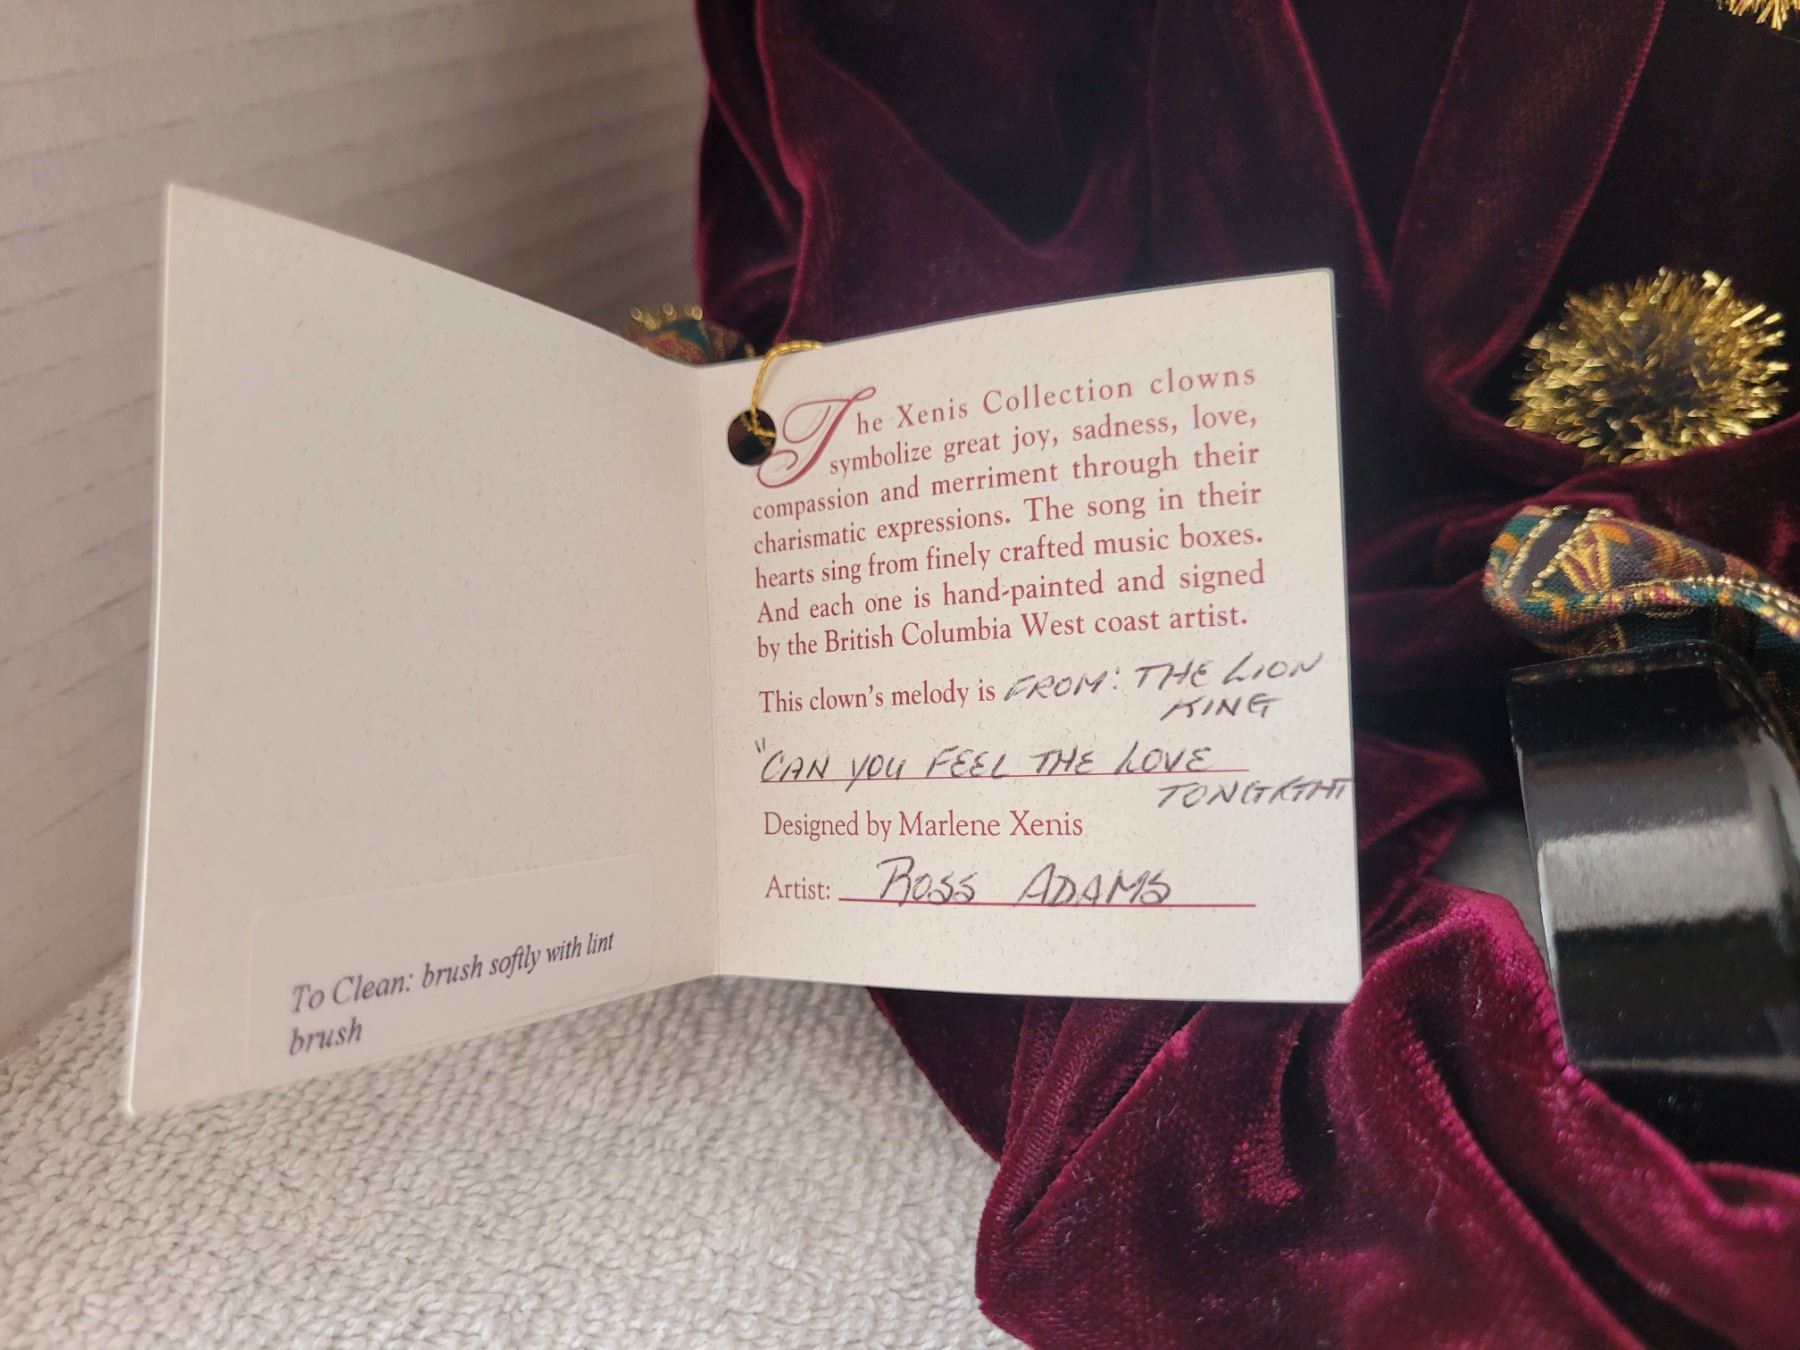 To Clean: brush softly with lint
brush
The Xenis Collection clowns
symbolize great joy, sadness, love,
compassion and merriment through their
charismatic expressions. The song in their
hearts sing from finely crafted music boxes.
And each one is hand-painted and signed
by the British Columbia West coast artist.
This clown's melody is FROM: THE LION
KING
"CAN YOU FEEL THE LOVE
TONIGHT
Designed by Marlene Xenis
Artist: ROSS ADAMS